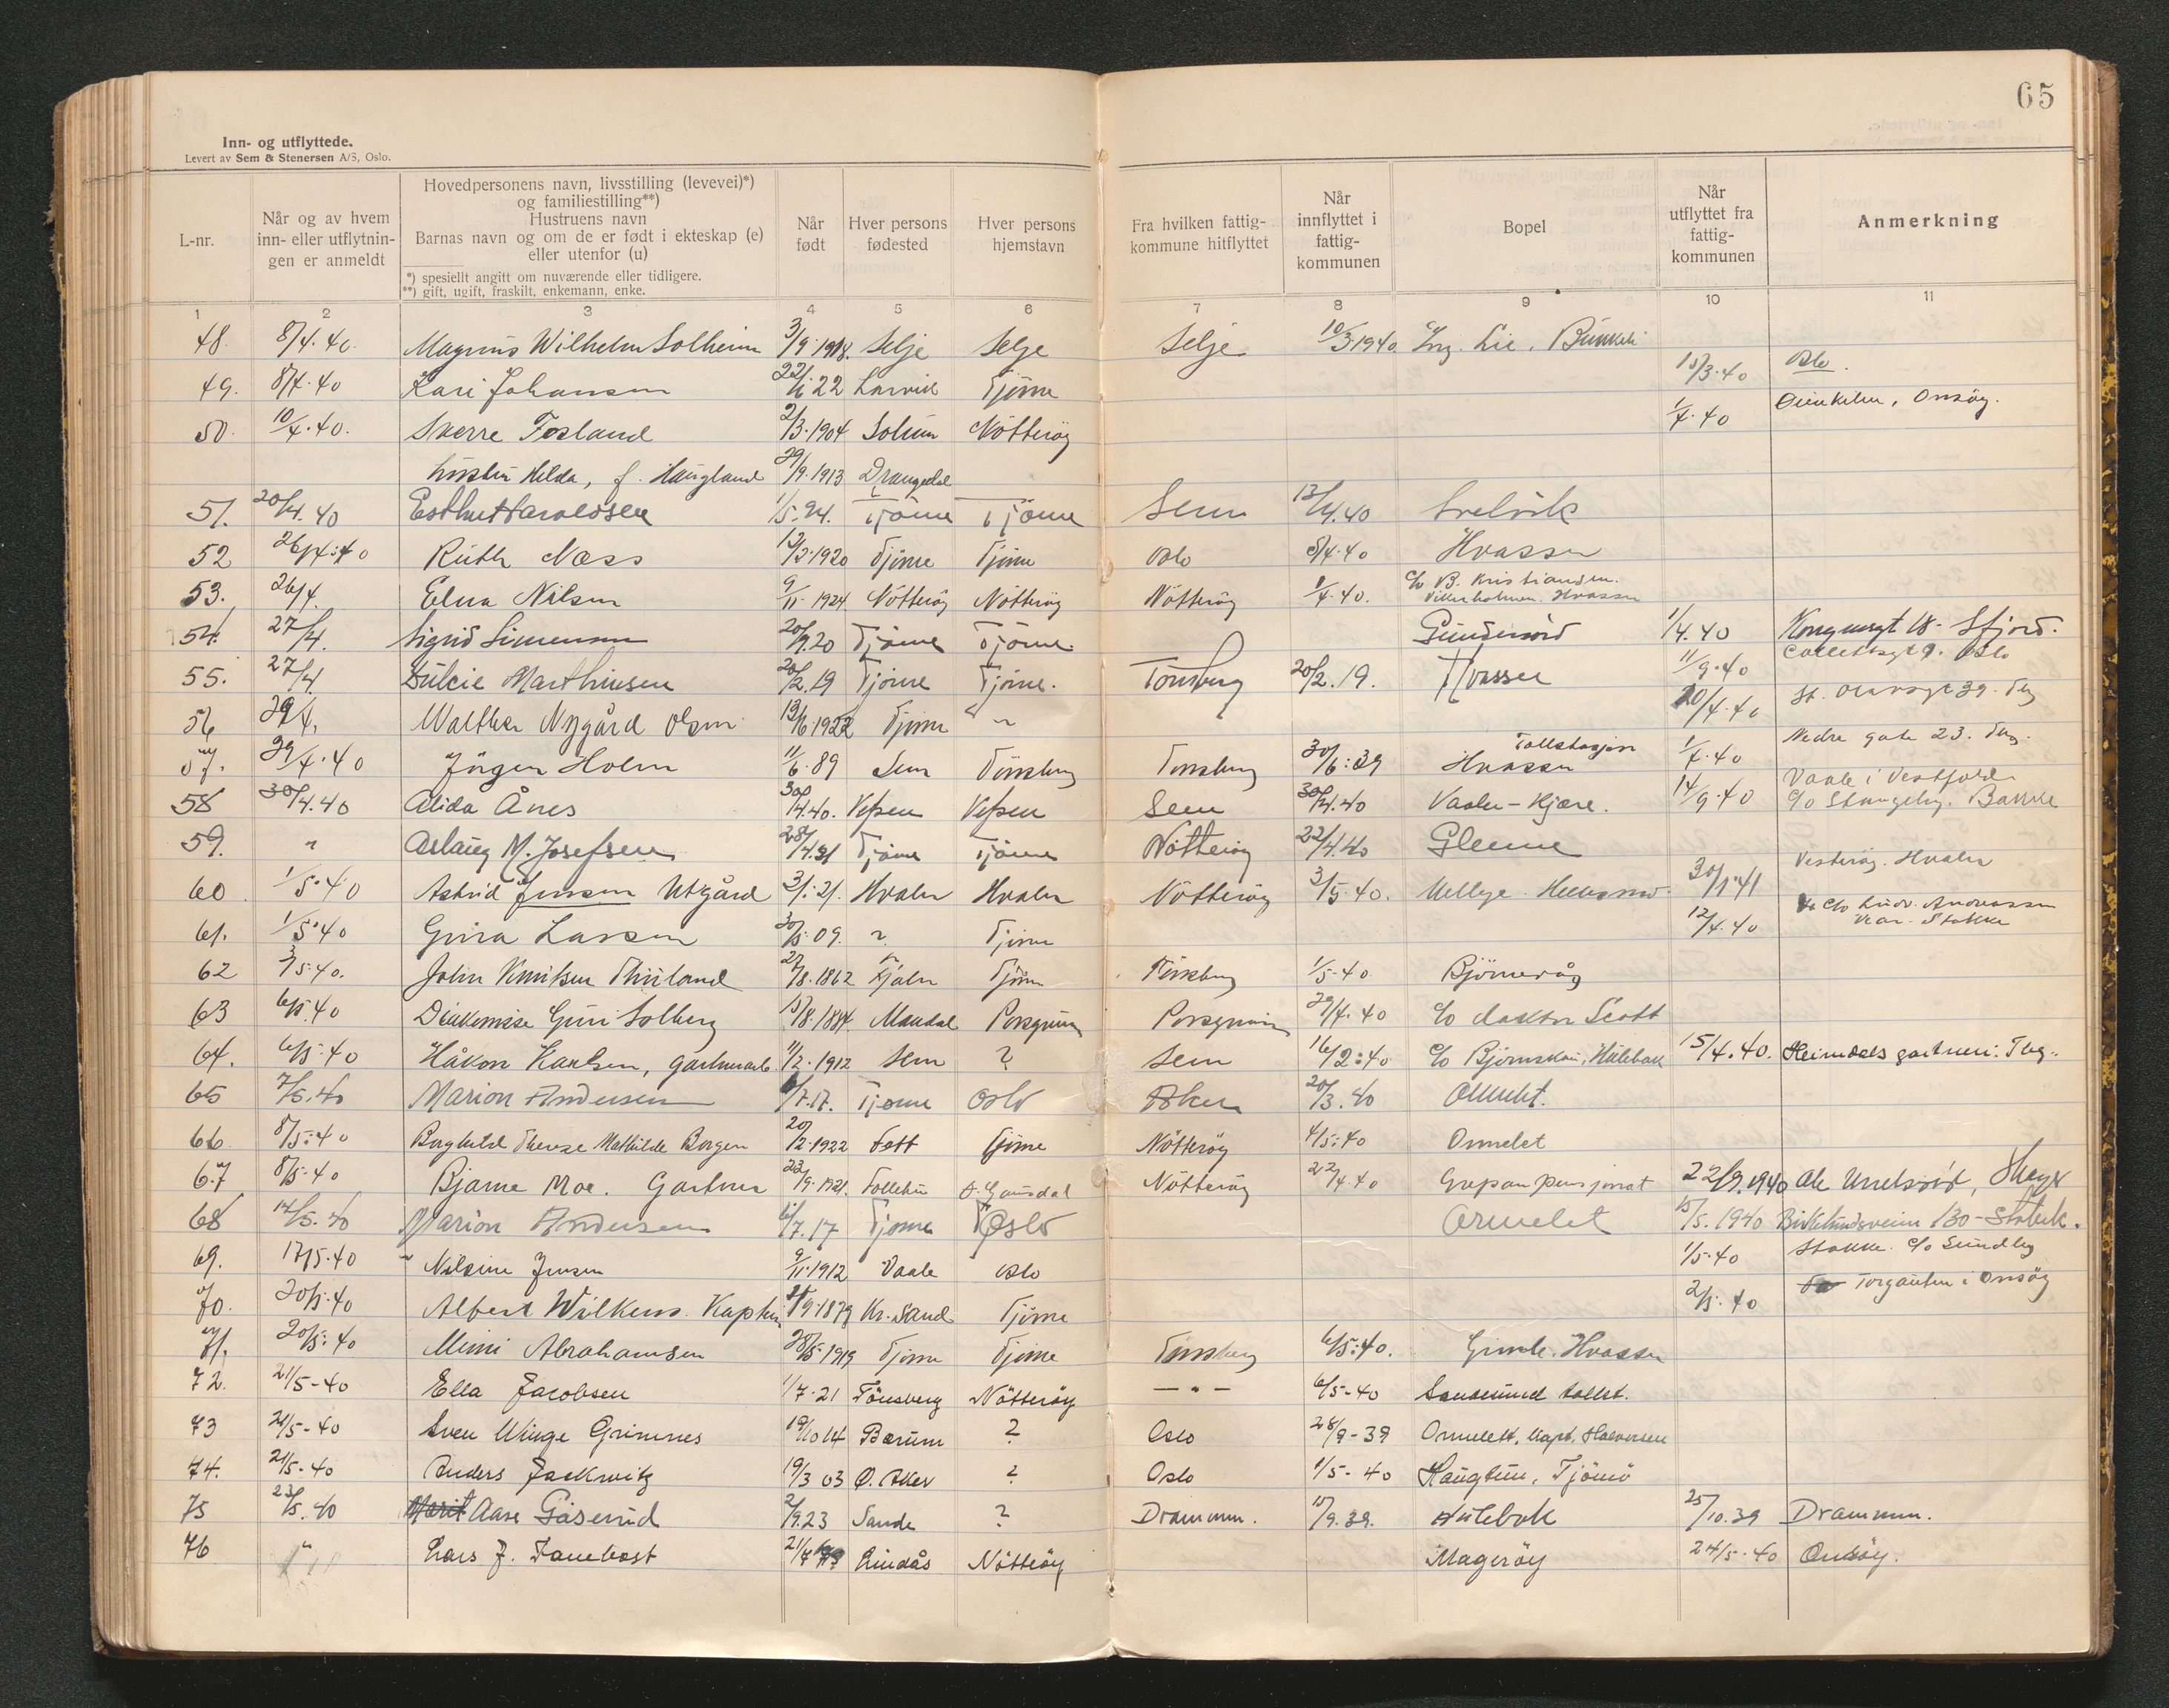 65
Inn- og utflyttede.
Levert av Sem & Stenersen A/S, Oslo.
L-nr.
Når og av hvem inn- eller utflytningen er anmeldt
Hovedpersonens navn, livsstilling (levevei)*)
og familiestilling**)
Hustruens navn
Barnas navn og om de er født i ekteskap (e)
eller utenfor (u)
*) spesiellt angitt om nuværende eller tidligere.
**) gift, ugift, fraskilt, enkemann, enke.
Når født
Hver persons fødested
Hver persons hjemstavn
Fra hvilken fattig-kommune hitflyttet
Når innflyttet i fattig-kommunen
Bopel
Når utflyttet fra fattig-kommunen
Anmerkning
1 2 3 4 5 6 7 8 9 10 11
48. 8/4.40. Magnus Wilhelm Solheim 3/9.1918. Selje Selje Selje 10/3.1940 Ing. Lie.
49. 8/4.40 Kari Johansen 22/1.22 Larvik Tjöme 15/3.40 Oslo.
50. 10/4.40. Sverre Fosland 2/3.1904 Solum Nötteröy 1/4.40 Onsöy.
hustru Helda, f. Haugland 29/9.1913 Drangedal
51. 20/4.40 Esther Haroldsen 1/5.24. Tjöme Tjöme Sem 13/4.40 Svelvik
52 26/4.40 Ruth Næss 13/3.1920 Tjöme Tjöme Oslo 8/4.40 Hvasser
53. 26/4. Elna Nilsen 9/11.1924 Nötteröy Nötteröy Nötteröy 1/4.40. c/o B. Kristiansen. Hvasser
54. 27/4. Sigrid Simensen 20/9.20 Tjöme Tjöme. 1/4.40 Kongensgt 18 - Sfjord.
55. 27/4. Dulcie Marthinsen 20/2.19 Tjöme Tjöme. Tönsberg 20/2.19. Hvasser 11/9.40 Oslo
56 29/4. Walther Nygård Olsen 13/6.1922 Tjöme " 20/4.40 St. Olavsgt 39. Tbg
57. 29/4.40 Jörgen Holm 11/6.89 Sem Tönsberg Tönsberg 30/6.39 Tollstasjon Hvasser 1/4.40 Nedre gate 23. Tbg.
58 30/4.40 Alida Ånes 30/4.40. Vefsen Vefsen Sem 30/4.40 Vasler - Kjære. 14/9.40 Vaale i Vestfold c/o Stangeby. Barkke
59. " Aslaug M. Josefsen 28/4.21 Tjöme Tjöme Nötteröy 22/4.40
60 1/5.40 Astrid Jensen Utgård 3/1.21. Hvaler Hvaler Nötteröy 3/5.40. 30/1.41 Vesteröy. Hvaler
61. 1/5.40 Gina Larsen 30/5.09. ? Tjöme 12/4.40 c/o Ludv. Andreassen Stokke
62 3/5.40. John Knutsen 27/8.1862 Tjöme Tönsberg 1/5.40 Björnevåg
63 6/5.40 Diakonisse Guri Solberg 15/8.1884. Mandal Porsgrunn Porsgrunn 29/4.40 c/o doktor Scott
64. 6/5.40 Håkon Karlsen, gartnerarb. 11/2.1912 Sem ? Sem 16/2.40 c/o Björnskau, Hulebak 15/4.40. Heimdals gartneri. Tbg.
65 7/5.40 Marion Andersen 6/7.17. Tjöme Oslo Aker 20/3.40 Ormelet.
66 8/5.40 Borghild Therese Mathilde Borgen 20/2.1922 Fett Tjöme Nötteröy 4/5.40 Ormelet
67 8/5.40 Bjarne Moe. Gartner 23/9.1921. Follebu Ö. Gausdal Nötteröy 22/4.40 Grepan pensjonat 22/9.1940
68 14/5.40 Marion Andersen 6/7.17 Tjöme Oslo Ormelet 15/5.1940 Birkelundsveien 130 - Stabek.
69. 17/5.40 Nilsine Jensen 9/11.1912 Vaale Oslo 1/5.40 Stokke c/o Sundby
70. 20/5.40 Albert Wilkens. Kaptein 21/9.1879 Kr.sand Tjöme 2/5.40 Torgauten i Onsöy
71. 20/5.40 Mimi Abrahamsen 28/5.1919 Tjöme Tjöme Tönsberg 6/5.40. Grimle. Hvasser
72. 21/5-40 Ella Jacobsen 1/7.21 Tönsberg Nötteröy - " - 6/5-40 Sandesund tollst.
73 21/5-40 Sven Winge Grimnes 19/10 14 Bærum ? Oslo 28/9-39 Ormelett, Kapt. Halvorsen
74. 21/5-40 Anders Jackwitz 19/3 03 Ö. Aker ? Oslo 1/5-40 Haugtun, Tjömö
75 23/5.40 Marit Aase Gåserud 2/9.23 Sande ? Drammen. 15/9.39. Hulebak 25/10.39 Drammen.
76 " Lars J. Tanebost 21/4 Lindås Nötteröy Mageröy 24/5.40 Onsöy.